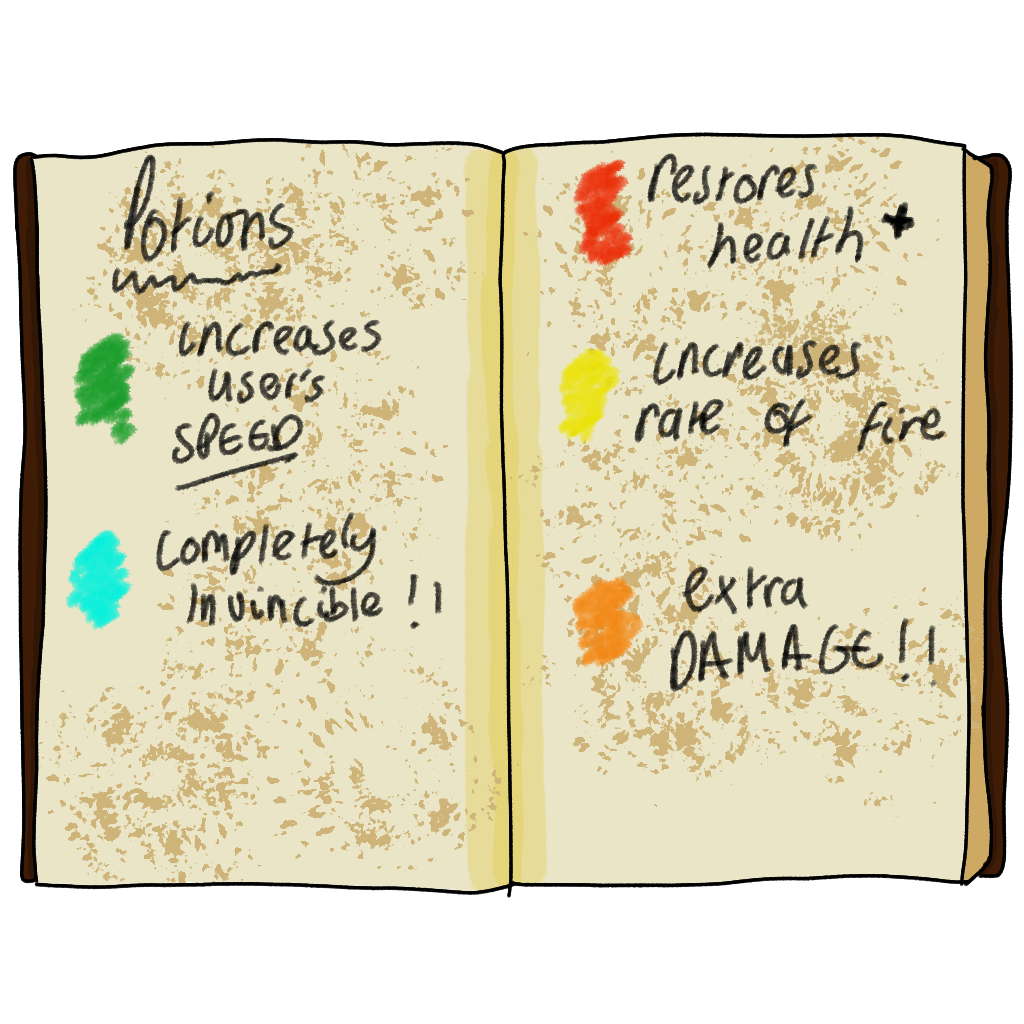 Potions
increases
user's
SPEED
completely
invincible !!
restores
health +
increases
rate of fire
extra
DAMAGE!!